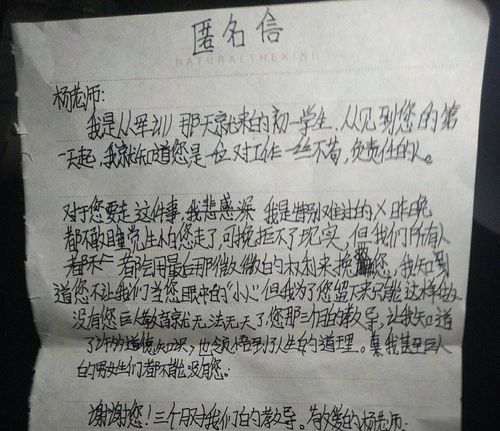 匿名信
NATURALTHEKING
杨老师:
我是从军训那天就来的初一学生.从见到您的第
一天起,我就知道您是一位对工作一丝不苟,负责任的人。
对于您要走这件事,我悲感深 我是特别难过的 昨晚
都不敢睡觉生怕您走了,可挽拒不了现实,但我们所有人
都不 都会用最后那微微的权利来挽您,我知到
道您不让我们当您眼中的"小人"但我为了您留下来只能这样做
没有您巨人教育就无法无天了您那三个月的教导,让我知道
了许多道德知识,也领悟到人生的道理。真我甚至巨人
的男女生们都不能没有您.
谢谢您!三个月对我们的教导。敬爱的杨老师.